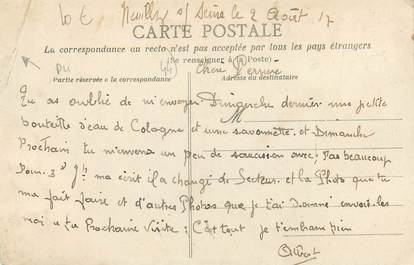 10 € Neuilly s/ Seine le 2 Août 17
CARTE POSTALE
La correspondance au recto n'est pas acceptée par tous les pays étrangers
(Se renseigner à la Poste)
Partie réservée à la correspondance
Adresse du destinataire
Chère
Tu as oublié de m'envoyer Dimgerche dernier une petite
bouteille d'eau de Cologne et une savonnette, et Dimanche
Prochain tu m'envera un peu de saucision avec. Pas beaucoup
Pour 3 m'a écrit il a changé de Secteur. et la Photo que tu
ma fait faire et d'autres Photos que je t'ai Donné envoit-les
moi a ta Prochaine Visite : C'est tout je t'embram bien
Albert